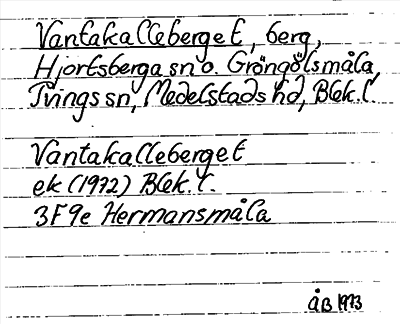 Vantakalleberget, berg,
Hjortsberga sn o. Gröngölsmåla,
Tvings sn, Medelstads hd, Blek. l.
Vantakalleberget
ek (1972) Blek. l.
3F9e Hermansmåla
ÅB 1973